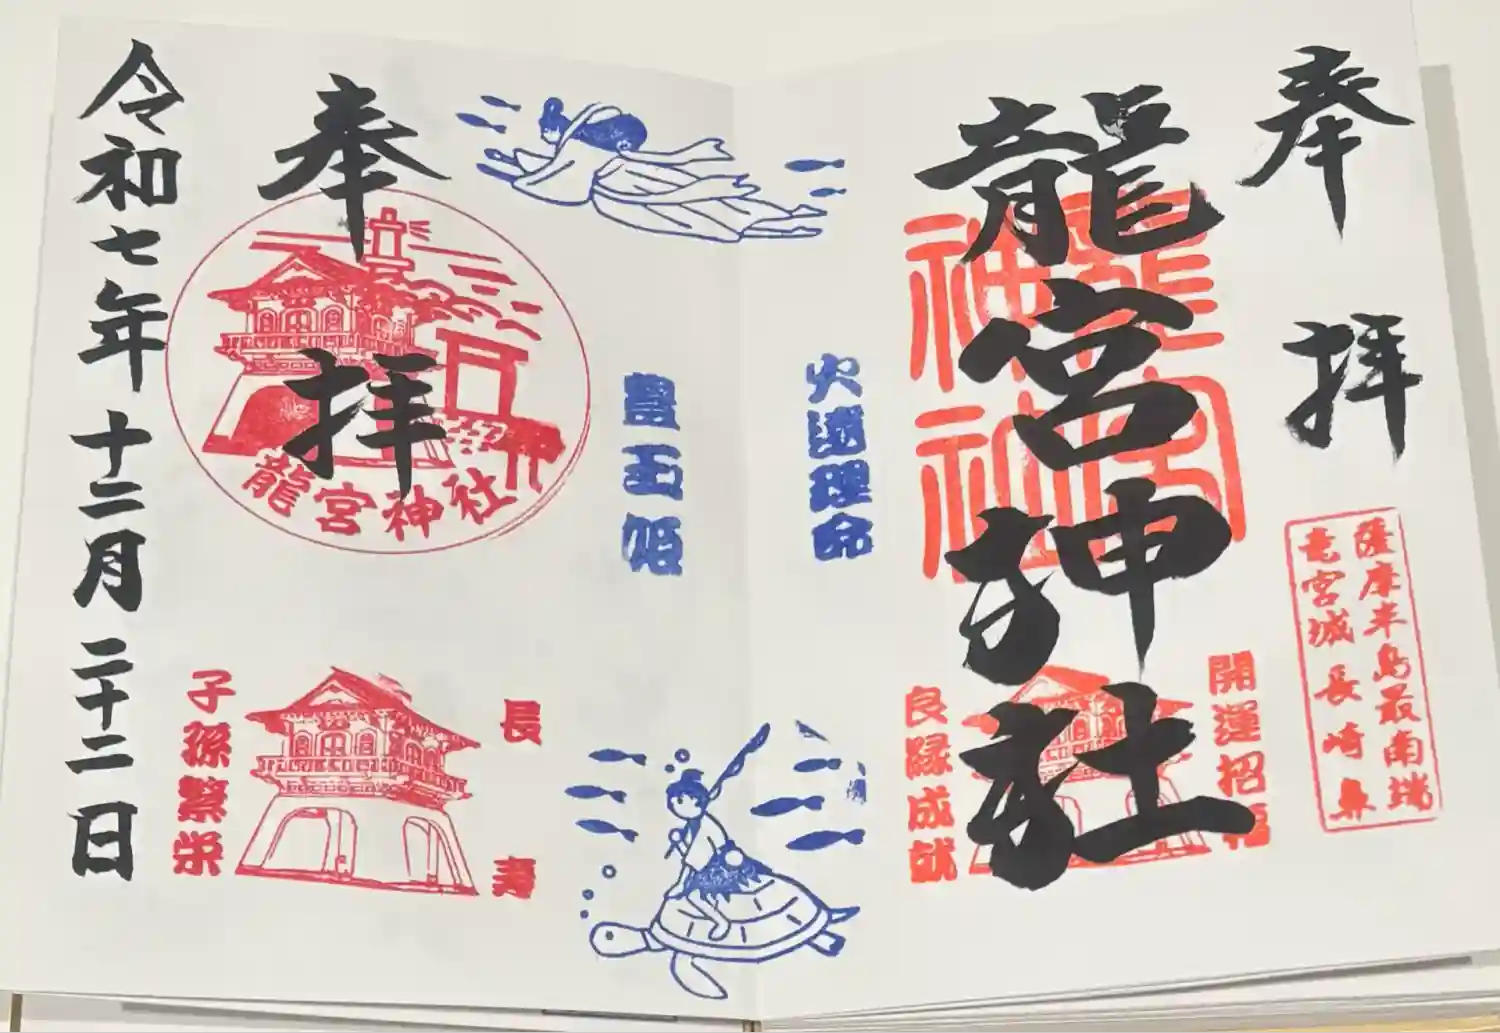 奉拝
薩摩半島最南端
竜宮城 長崎鼻
龍宮神社
龍宮
神社
開運招福
良縁成就
火遠理命
豊玉姫
奉拝
龍宮神社
長寿
子孫繁栄
令和七年十二月二十二日